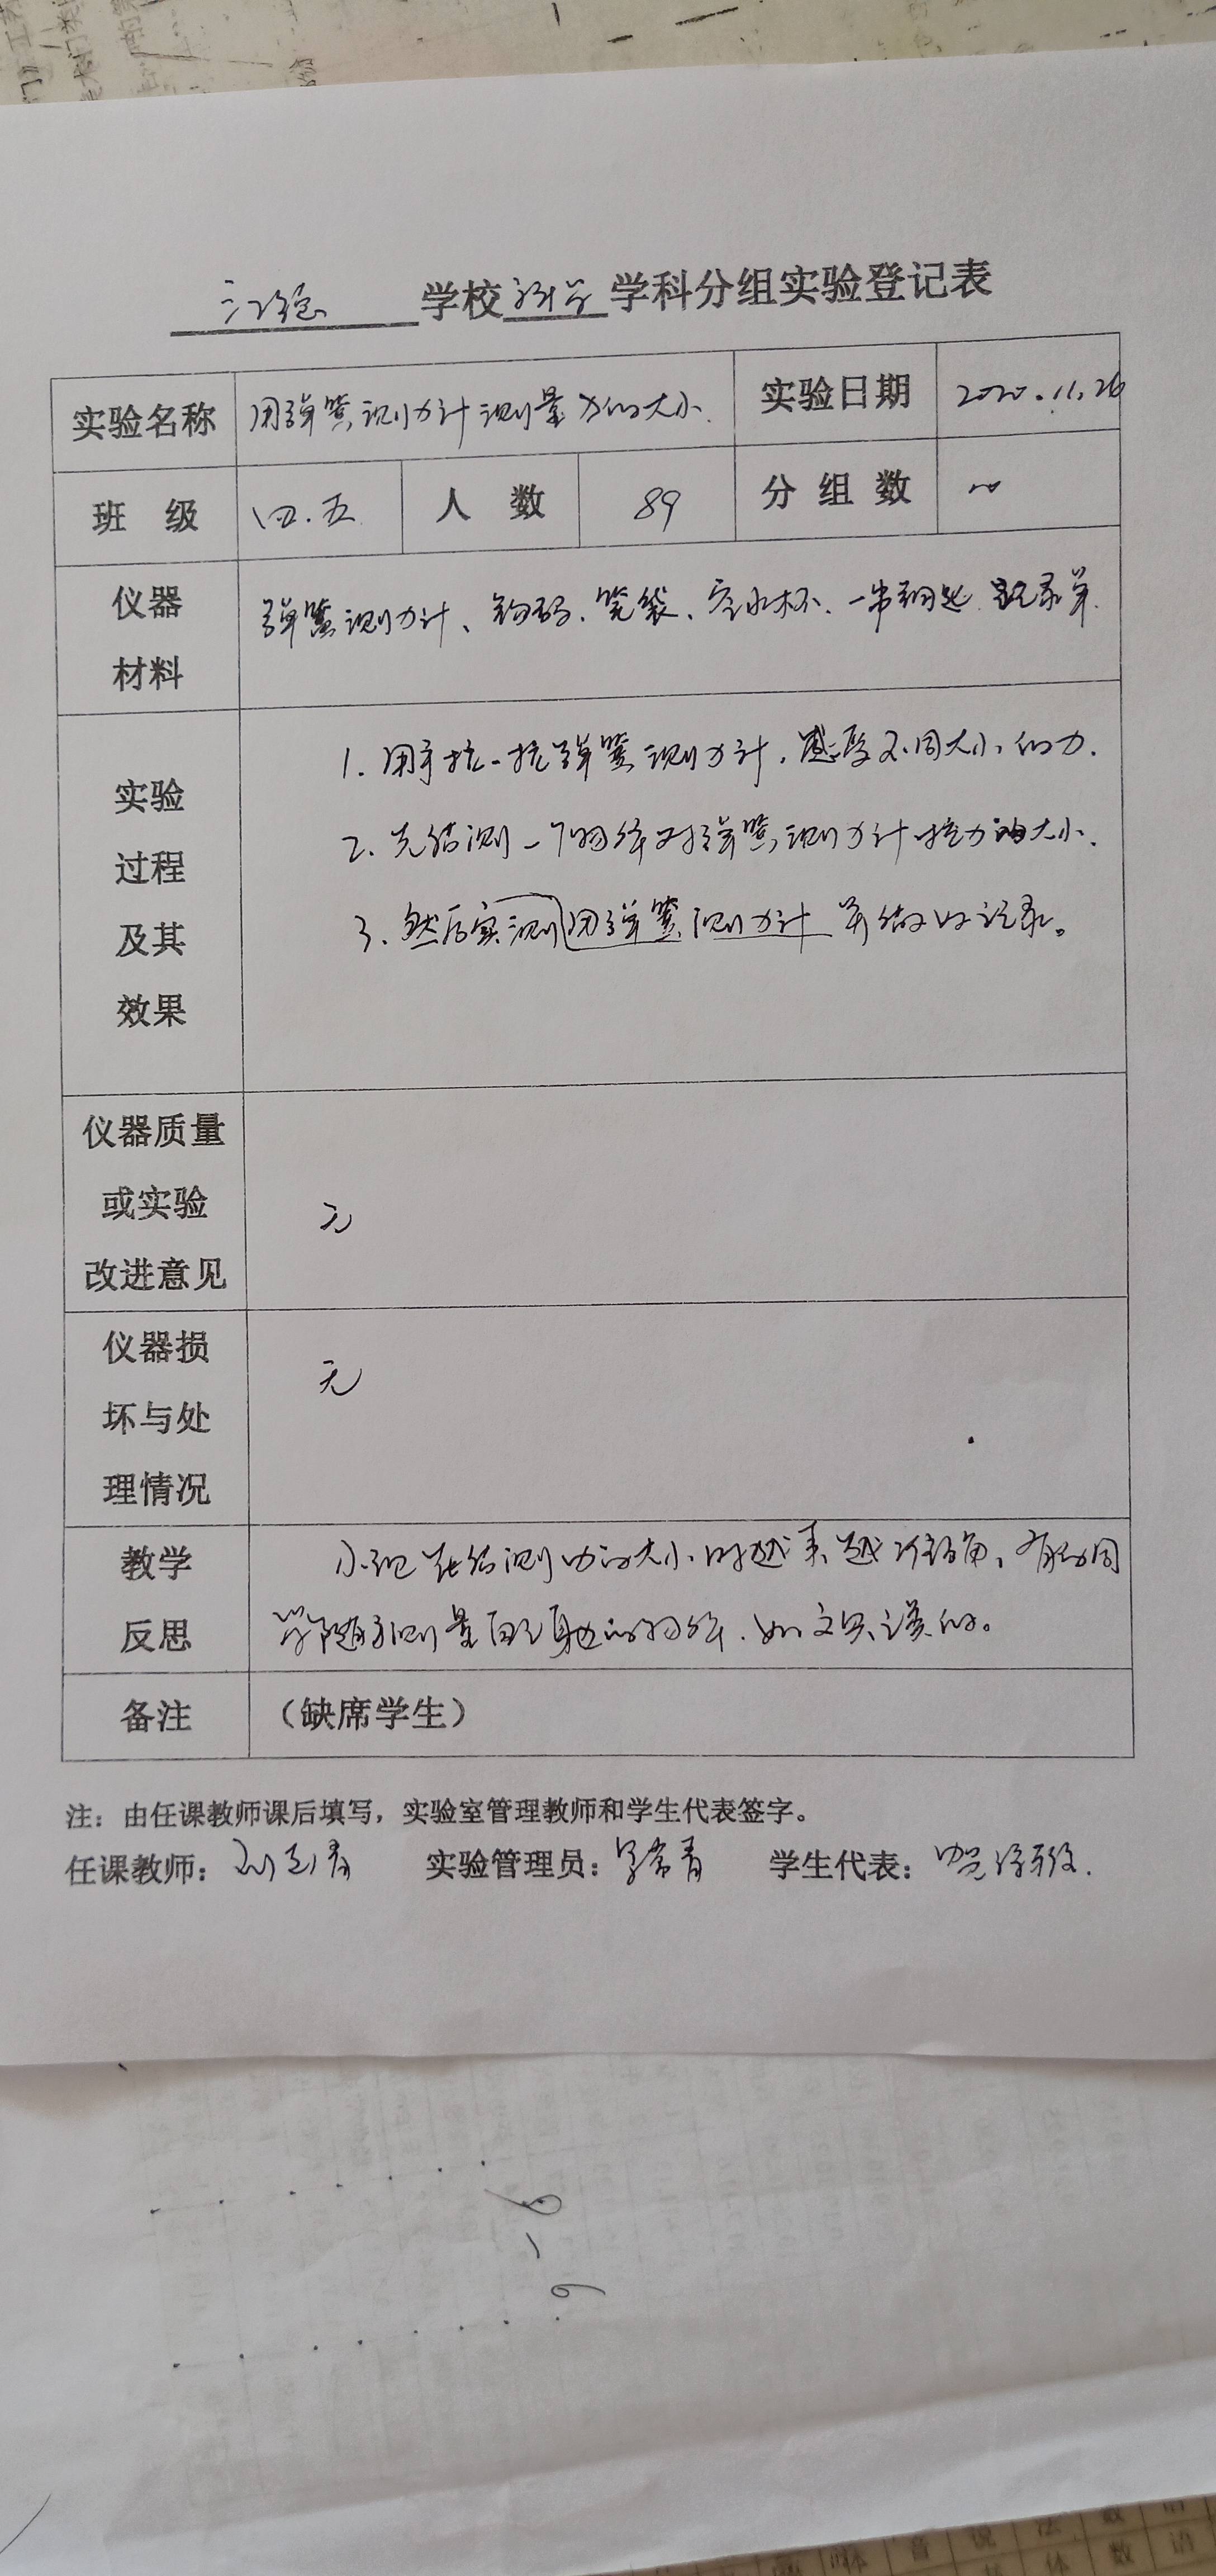 学校科学学科分组实验登记表
实验名称 用弹簧测力计测量力的大小. 实验日期 2020.11.26
班 级 四.五 人 数 89 分 组 数
仪器
材料
弹簧测力计、钩码、笔袋、空水杯、一串钥匙 记录单.
实验
过程
及其
效果
1. 用手拉一拉弹簧测力计,感受不同大小的力.
2. 先估测一个物体对弹簧测力计拉力的大小.
3. 然后实测用弹簧测力计 并做好记录。
仪器质量
或实验
改进意见
无
仪器损
坏与处
理情况
无
教学
反思
小组在估测力的大小时越来越准确、有的同
学随手测量自己身边的物体.如文具类的。
备注 (缺席学生)
注:由任课教师课后填写,实验室管理教师和学生代表签字。
任课教师: 实验管理员: 学生代表: